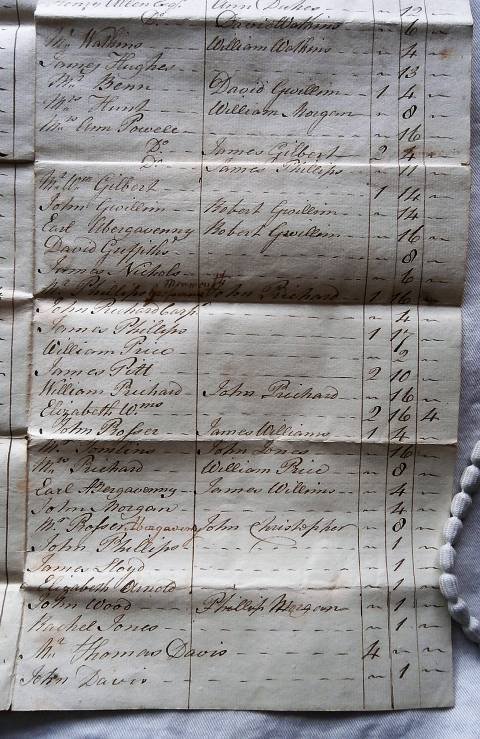 Ann Dukes - - ~ 12 ~
Do. David Watkins - ~ 6 ~
Mr. Watkins William Watkins ~ 4 ~
James Hughes - - - ~ 13 ~
Mr. Benn David Gwillim - 1 4 ~
Mrs. Hunt William Morgan - ~ 8 ~
Mrs. Ann Powell - - - ~ 16 ~
Do. James Gilbert - 2 4 ~
Do. James Phillips - ~ 11 ~
Mr. Wm. Gilbert - - 1 14 ~
John Gwillim Robert Gwillim - ~ 14 ~
Earl Abergavenny Robert Gwillim - ~ 16 ~
David Griffiths - - - ~ 8 ~
James Nichols - - - ~ 6 ~
Mr. Phillips John Prichard 1 16 ~
John Richard Carp. - - - ~ 4 ~
James Phillips 1 17 ~
William Price ~ 2 ~
James Pitt 2 10 ~
William Prichard John Prichard - ~ 16 ~
Elizabeth Wms 2 16 4
John Bosser James Williams 1 4 ~
John Jones - - ~ 16 ~
Mrs. Prichard William Price - ~ 8 ~
Earl Abergavenny James Willims ~ 4 ~
John Morgan - - - ~ 4 ~
Mr. Bosser Abergavenny John Christopher ~ 8 ~
John Phillips - - - ~ 1 ~
James Lloyd - - - ~ 1 ~
Elizabeth Arnold - - - ~ 1 ~
John Wood Phillip Morgan ~ 1 ~
Rachel Jones - - - ~ 1 ~
Mr. Thomas Davis 4 ~ ~
John Davis - - - ~ 1 ~